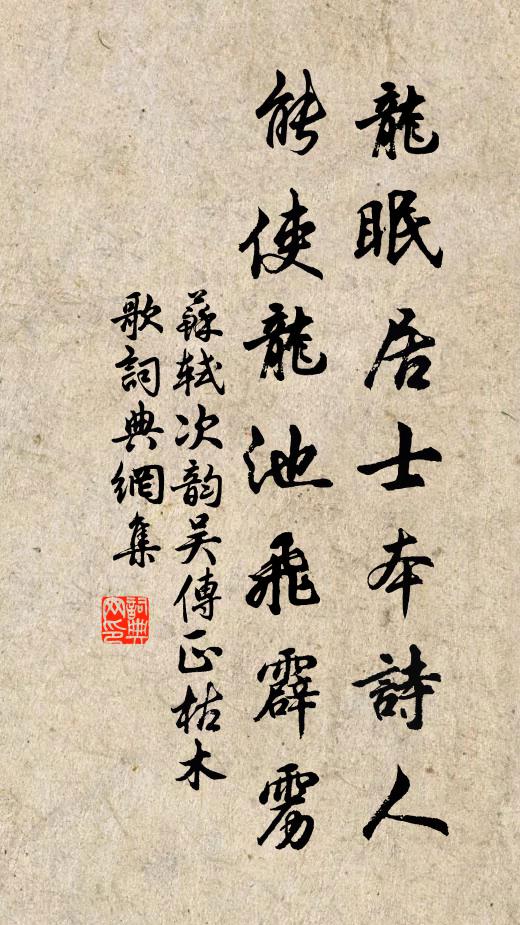 龍眠居士本詩人
能使龍池飛霹靂
蘇軾次韵吴傳正枯木
歌詞典網集
詞典網印